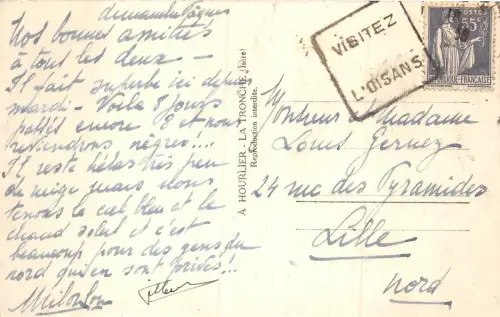 dimanche Pâques
Nos bonnes amitiés
à tous les deux —
Il fait superbe ici depuis
mardi - Voilà 8 jours
passés encore 8 et nous
reviendrons nègres!...
Il reste hélas très peu
de neige mais nous
tenons le ciel bleu et le
chaud soleil et c'est
beaucoup pour des gens du
nord qui en sont privés!!.
A HOURLIER - LA TRONCHE (Isère)
Reproduction interdite.
VISITEZ
L'OISANS
POSTES
55c
Monsieur & Madame
Louis Gernez
24 rue des Pyramides
Lille
Nord